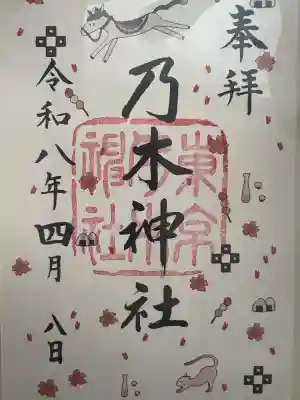 奉拝
乃木神社
東京
乃木
神社
令和八年四月 八日